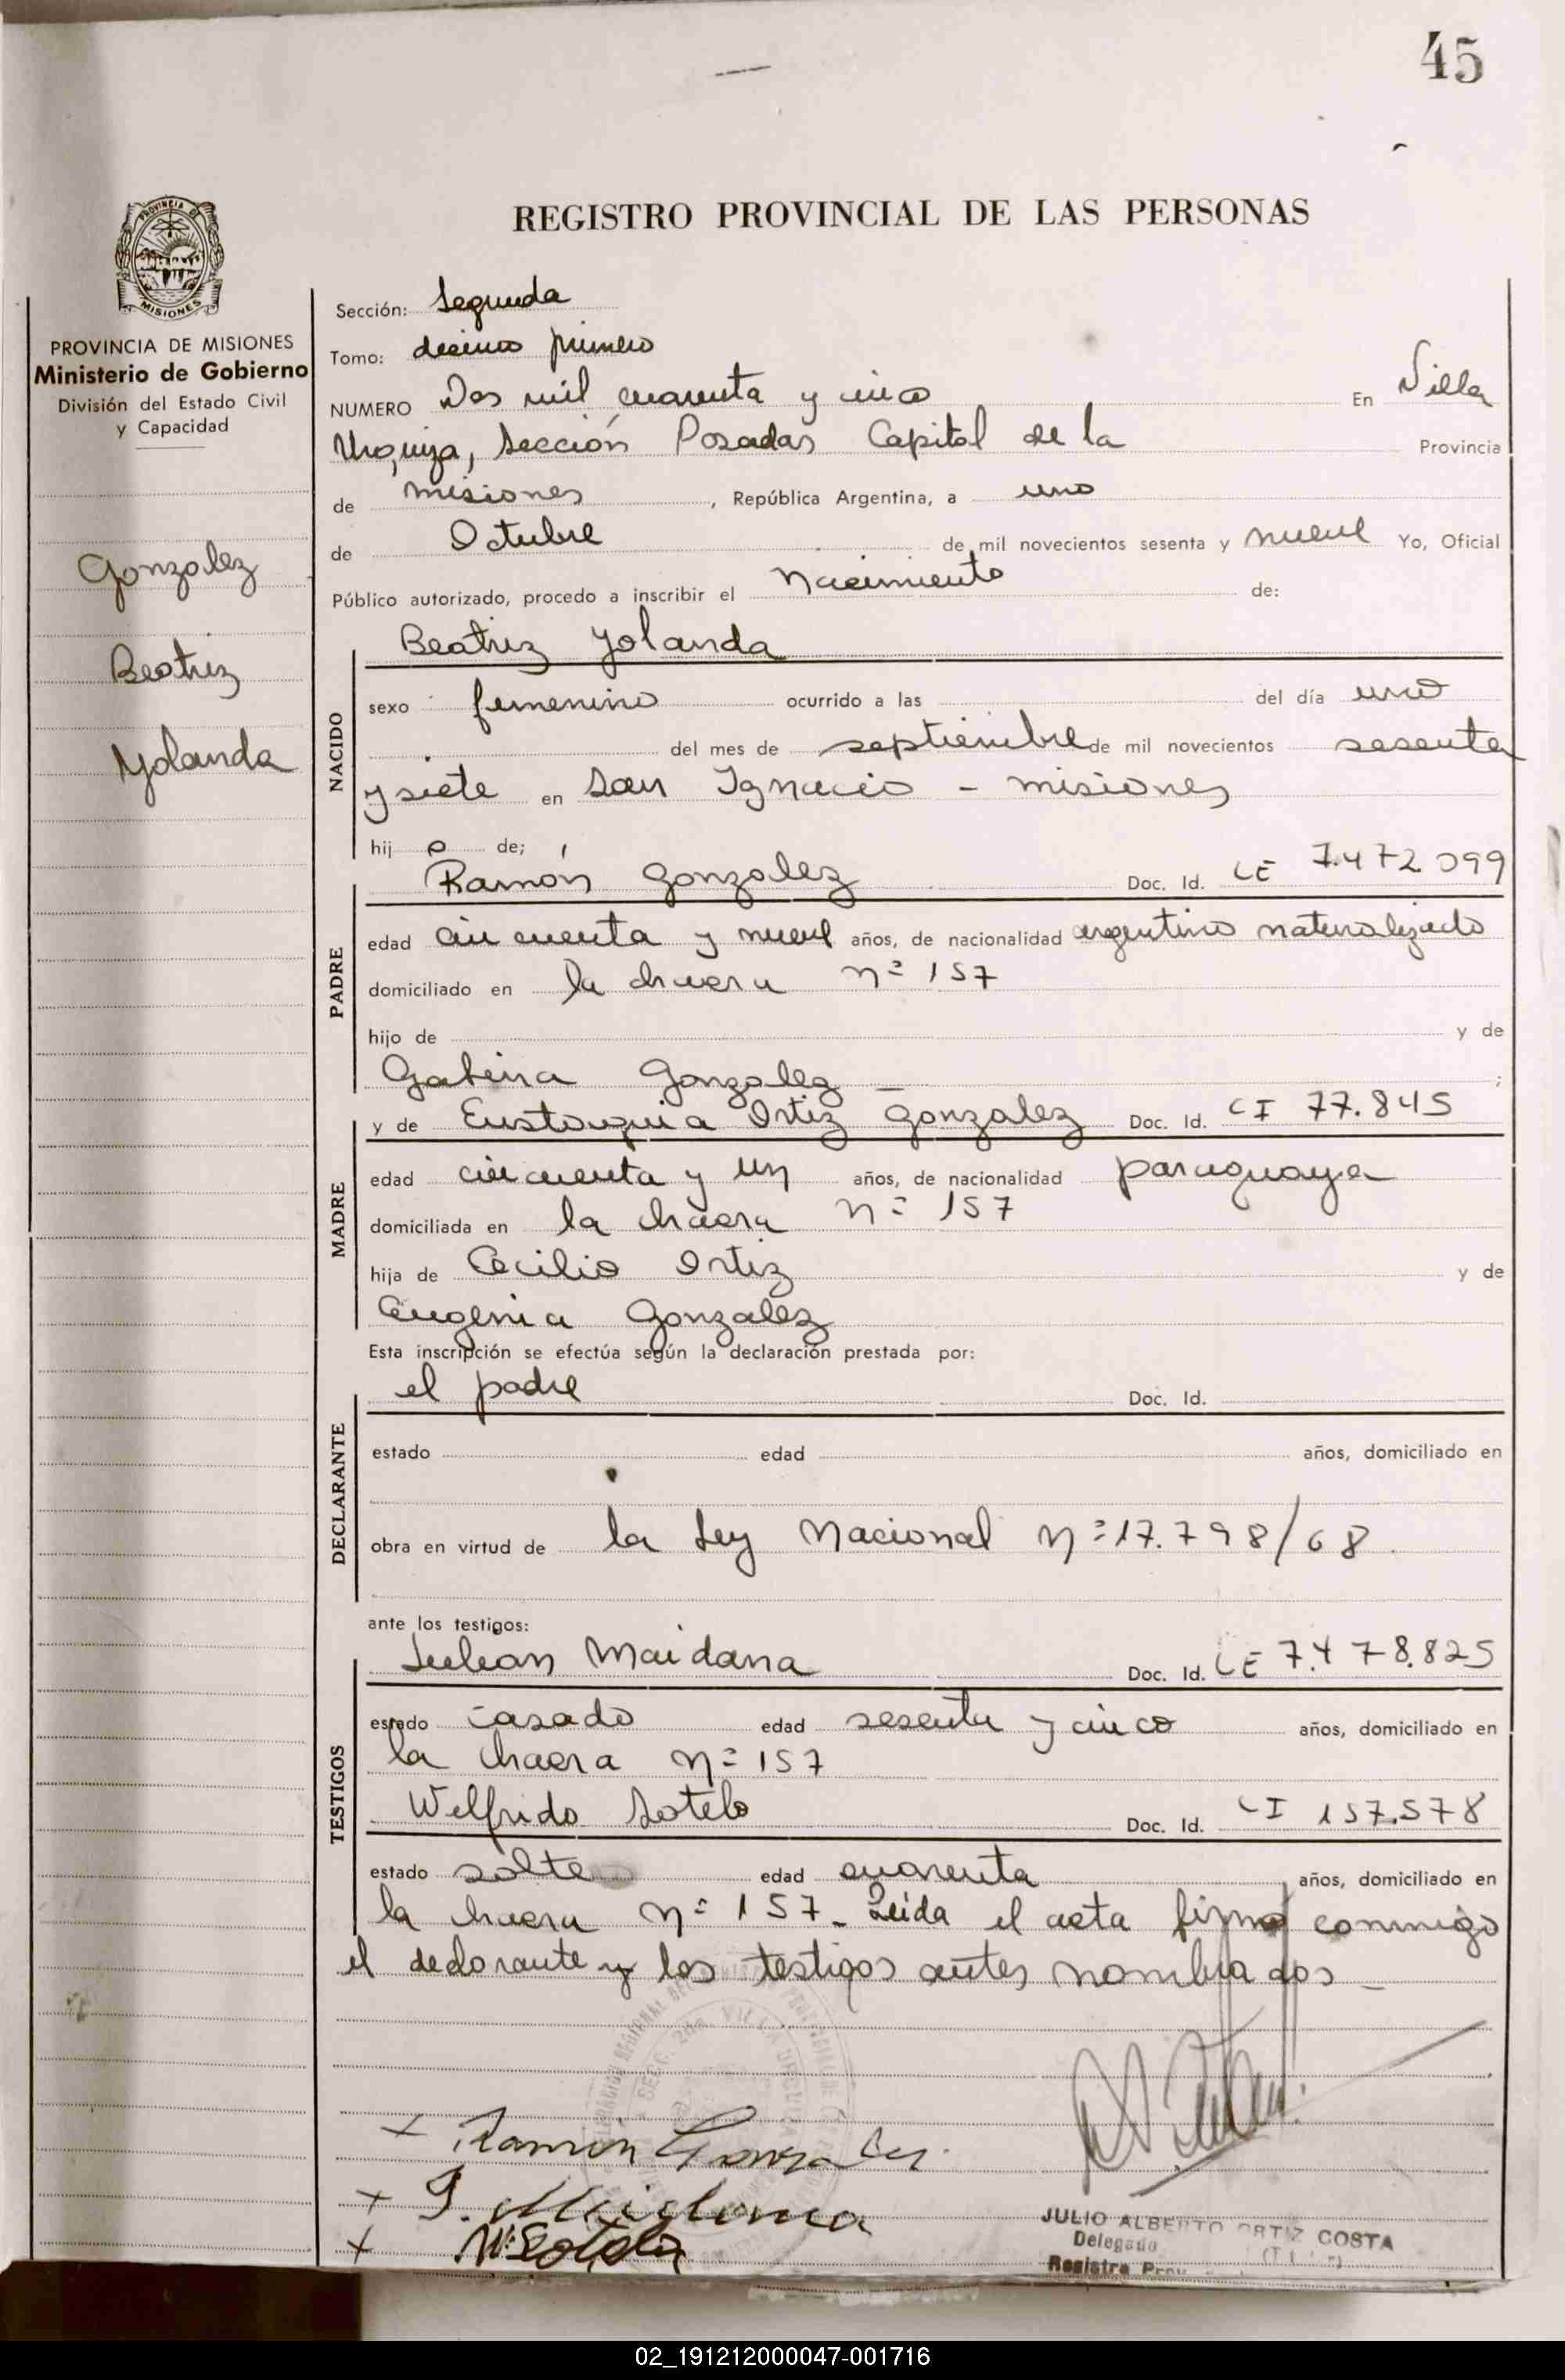 45
REGISTRO PROVINCIAL DE LAS PERSONAS
PROVINCIA DE
MISIONES
PROVINCIA DE MISIONES
Ministerio de Gobierno
División del Estado Civil
y Capacidad
Gonzalez
Beatriz
Yolanda
Sección: Segunda
Tomo: decimo primero
NUMERO Dos mil cuarenta y cinco En Villa
Urquiza, Sección Posadas Capital de la Provincia
de misiones, República Argentina, a uno
de Octubre de mil novecientos sesenta y nueve Yo, Oficial
Público autorizado, procedo a inscribir el nacimiento de:
NACIDO
Beatriz Yolanda
sexo femenino ocurrido a las del día uno
del mes de septiembre de mil novecientos sesenta
y siete en San Ignacio - misiones
hij a de;
PADRE
Ramón Gonzalez Doc. Id. LE 7.472.099
edad cincuenta y nueve años, de nacionalidad argentino naturalizado
domiciliado en la chacra nº 157
hijo de y de
Gabina Gonzalez - ;
MADRE
y de Eustaquia Ortiz Gonzalez Doc. Id. CI 77.845
edad cincuenta y un años, de nacionalidad paraguaya
domiciliada en la chacra nº 157
hija de Cecilio Ortiz y de
Eugenia Gonzalez
Esta inscripción se efectúa según la declaración prestada por:
DECLARANTE
el padre Doc. Id.
estado edad años, domiciliado en
obra en virtud de la Ley Nacional Nº 17.798/68.
ante los testigos:
TESTIGOS
Julian Maidana Doc. Id. LE 7.478.825
estado casado edad sesenta y cinco años, domiciliado en
la chacra nº 157
Welfrido Sotelo Doc. Id. CI 157.578
estado solte edad cuarenta años, domiciliado en
la chacra nº 157. Leida el acta firma conmigo
el declarante y los testigos antes nombrados -
+ Ramon Gonzalez
+ J. Maidana
+ W. Sotelo
JULIO ALBERTO ORTIZ COSTA
Delegado
Registro Prov
02_191212000047-001716